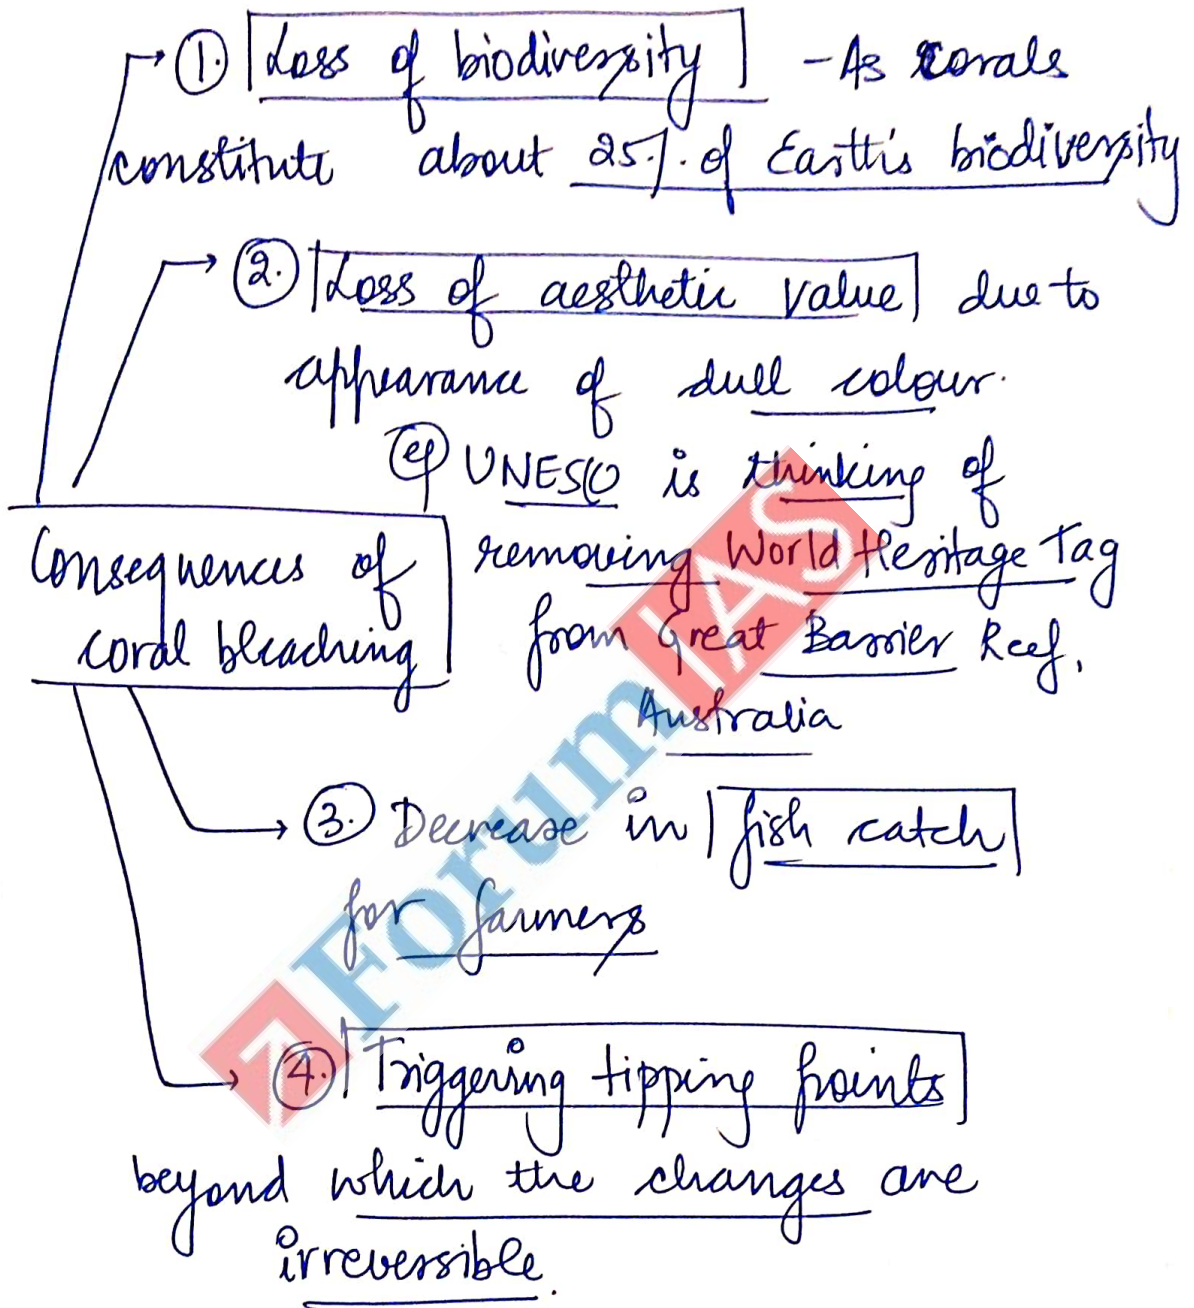 1. Loss of biodiversity - As corals
constitute about 25%. of Earth's biodiversity
2. Loss of aesthetic value due to
appearance of dull colour.
eg UNESCO is thinking of
removing World Heritage Tag
from Great Barrier Reef,
Australia
Consequences of
coral bleaching
3. Decrease in fish catch
for farmers
4. Triggering tipping points
beyond which the changes are
irreversible.
ForumIAS